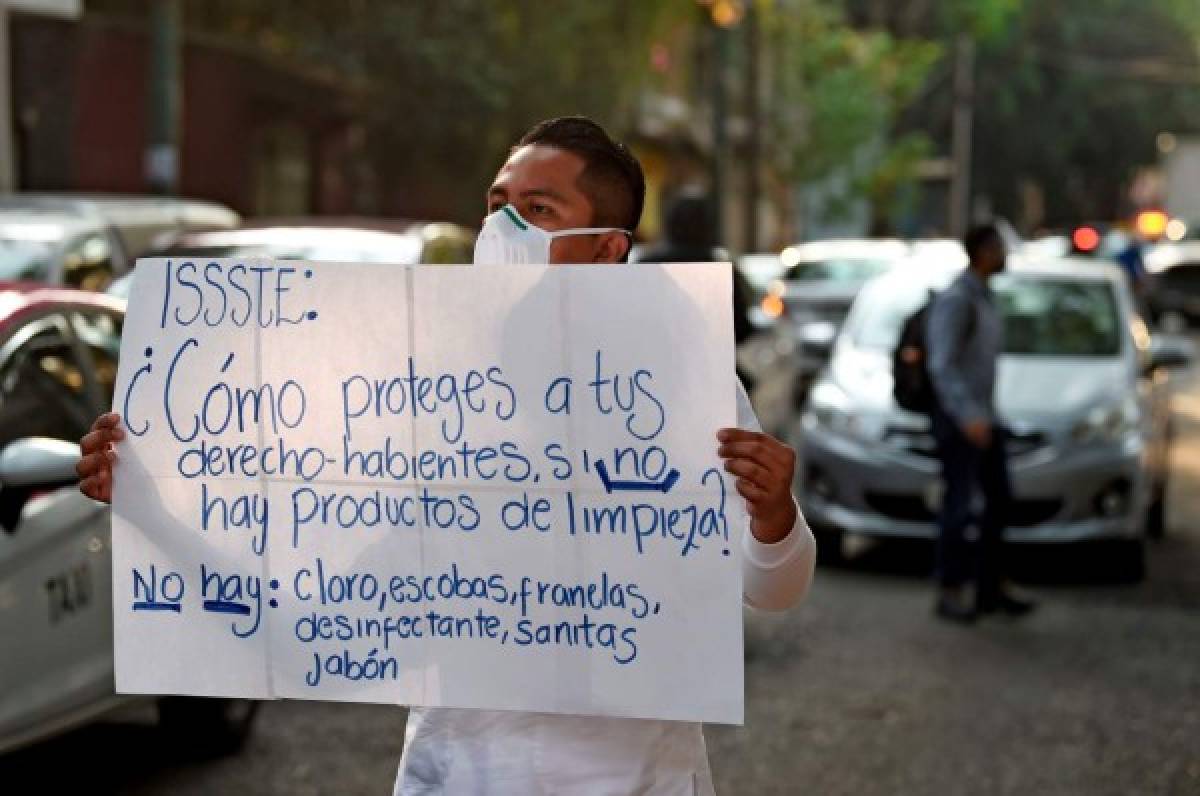 ISSSTE:
¿Cómo proteges a tus
derecho-habientes, si no
hay productos de limpieza?
No hay: cloro, escobas, franelas,
desinfectante, sanitas
jabón
TAXI